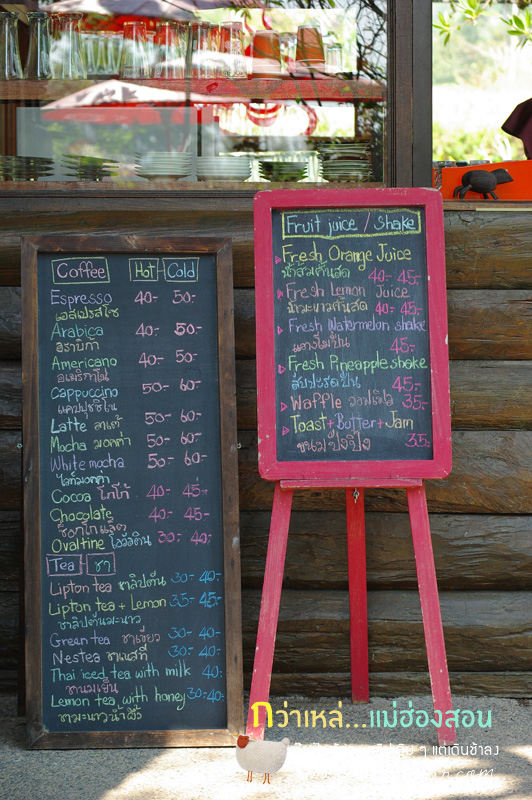 Coffee Hot Cold
Espresso 40.- 50.-
เอสเปรสโซ
Arabica 40.- 50.-
อราบิก้า
Americano 40.- 50.-
อเมริกาโน
Cappuccino 50.- 60.-
แคปปูชิโน
Latte ลาเต้ 50.- 60.-
Mocha มอคค่า 50.- 60.-
White mocha 50.- 60.-
ไวท์มอคค่า
Cocoa โกโก้ 40.- 45.-
Chocolate 40.- 45.-
ช็อกโกแล็ต
Ovaltine โอวัลติน 30.- 40.-
Tea ชา
Lipton tea ชาลิปตัน 30.- 40.-
Lipton tea + Lemon 35.- 45.-
ชาลิปตันมะนาว
Green tea ชาเขียว 30.- 40.-
Nestea ชาเนสที 30.- 40.-
Thai iced tea with milk 40.-
ชานมเย็น
Lemon tea with honey 30.- 40.-
ชามะนาวน้ำผึ้ง
Fruit juice / Shake
Fresh Orange Juice
น้ำส้มคั้นสด 40.- 45.-
Fresh Lemon Juice
น้ำมะนาวคั้นสด 40.- 45.-
Fresh Watermelon shake
แตงโมปั่น 45.-
Fresh Pineapple shake
สับปะรดปั่น 45.-
Waffle วาฟเฟิล 35.-
Toast + Butter + Jam
ขนมปังปิ้ง 35.-
กว่าเหล่...แม่ฮ่องสอน
ๆ แต่เดินช้าลง